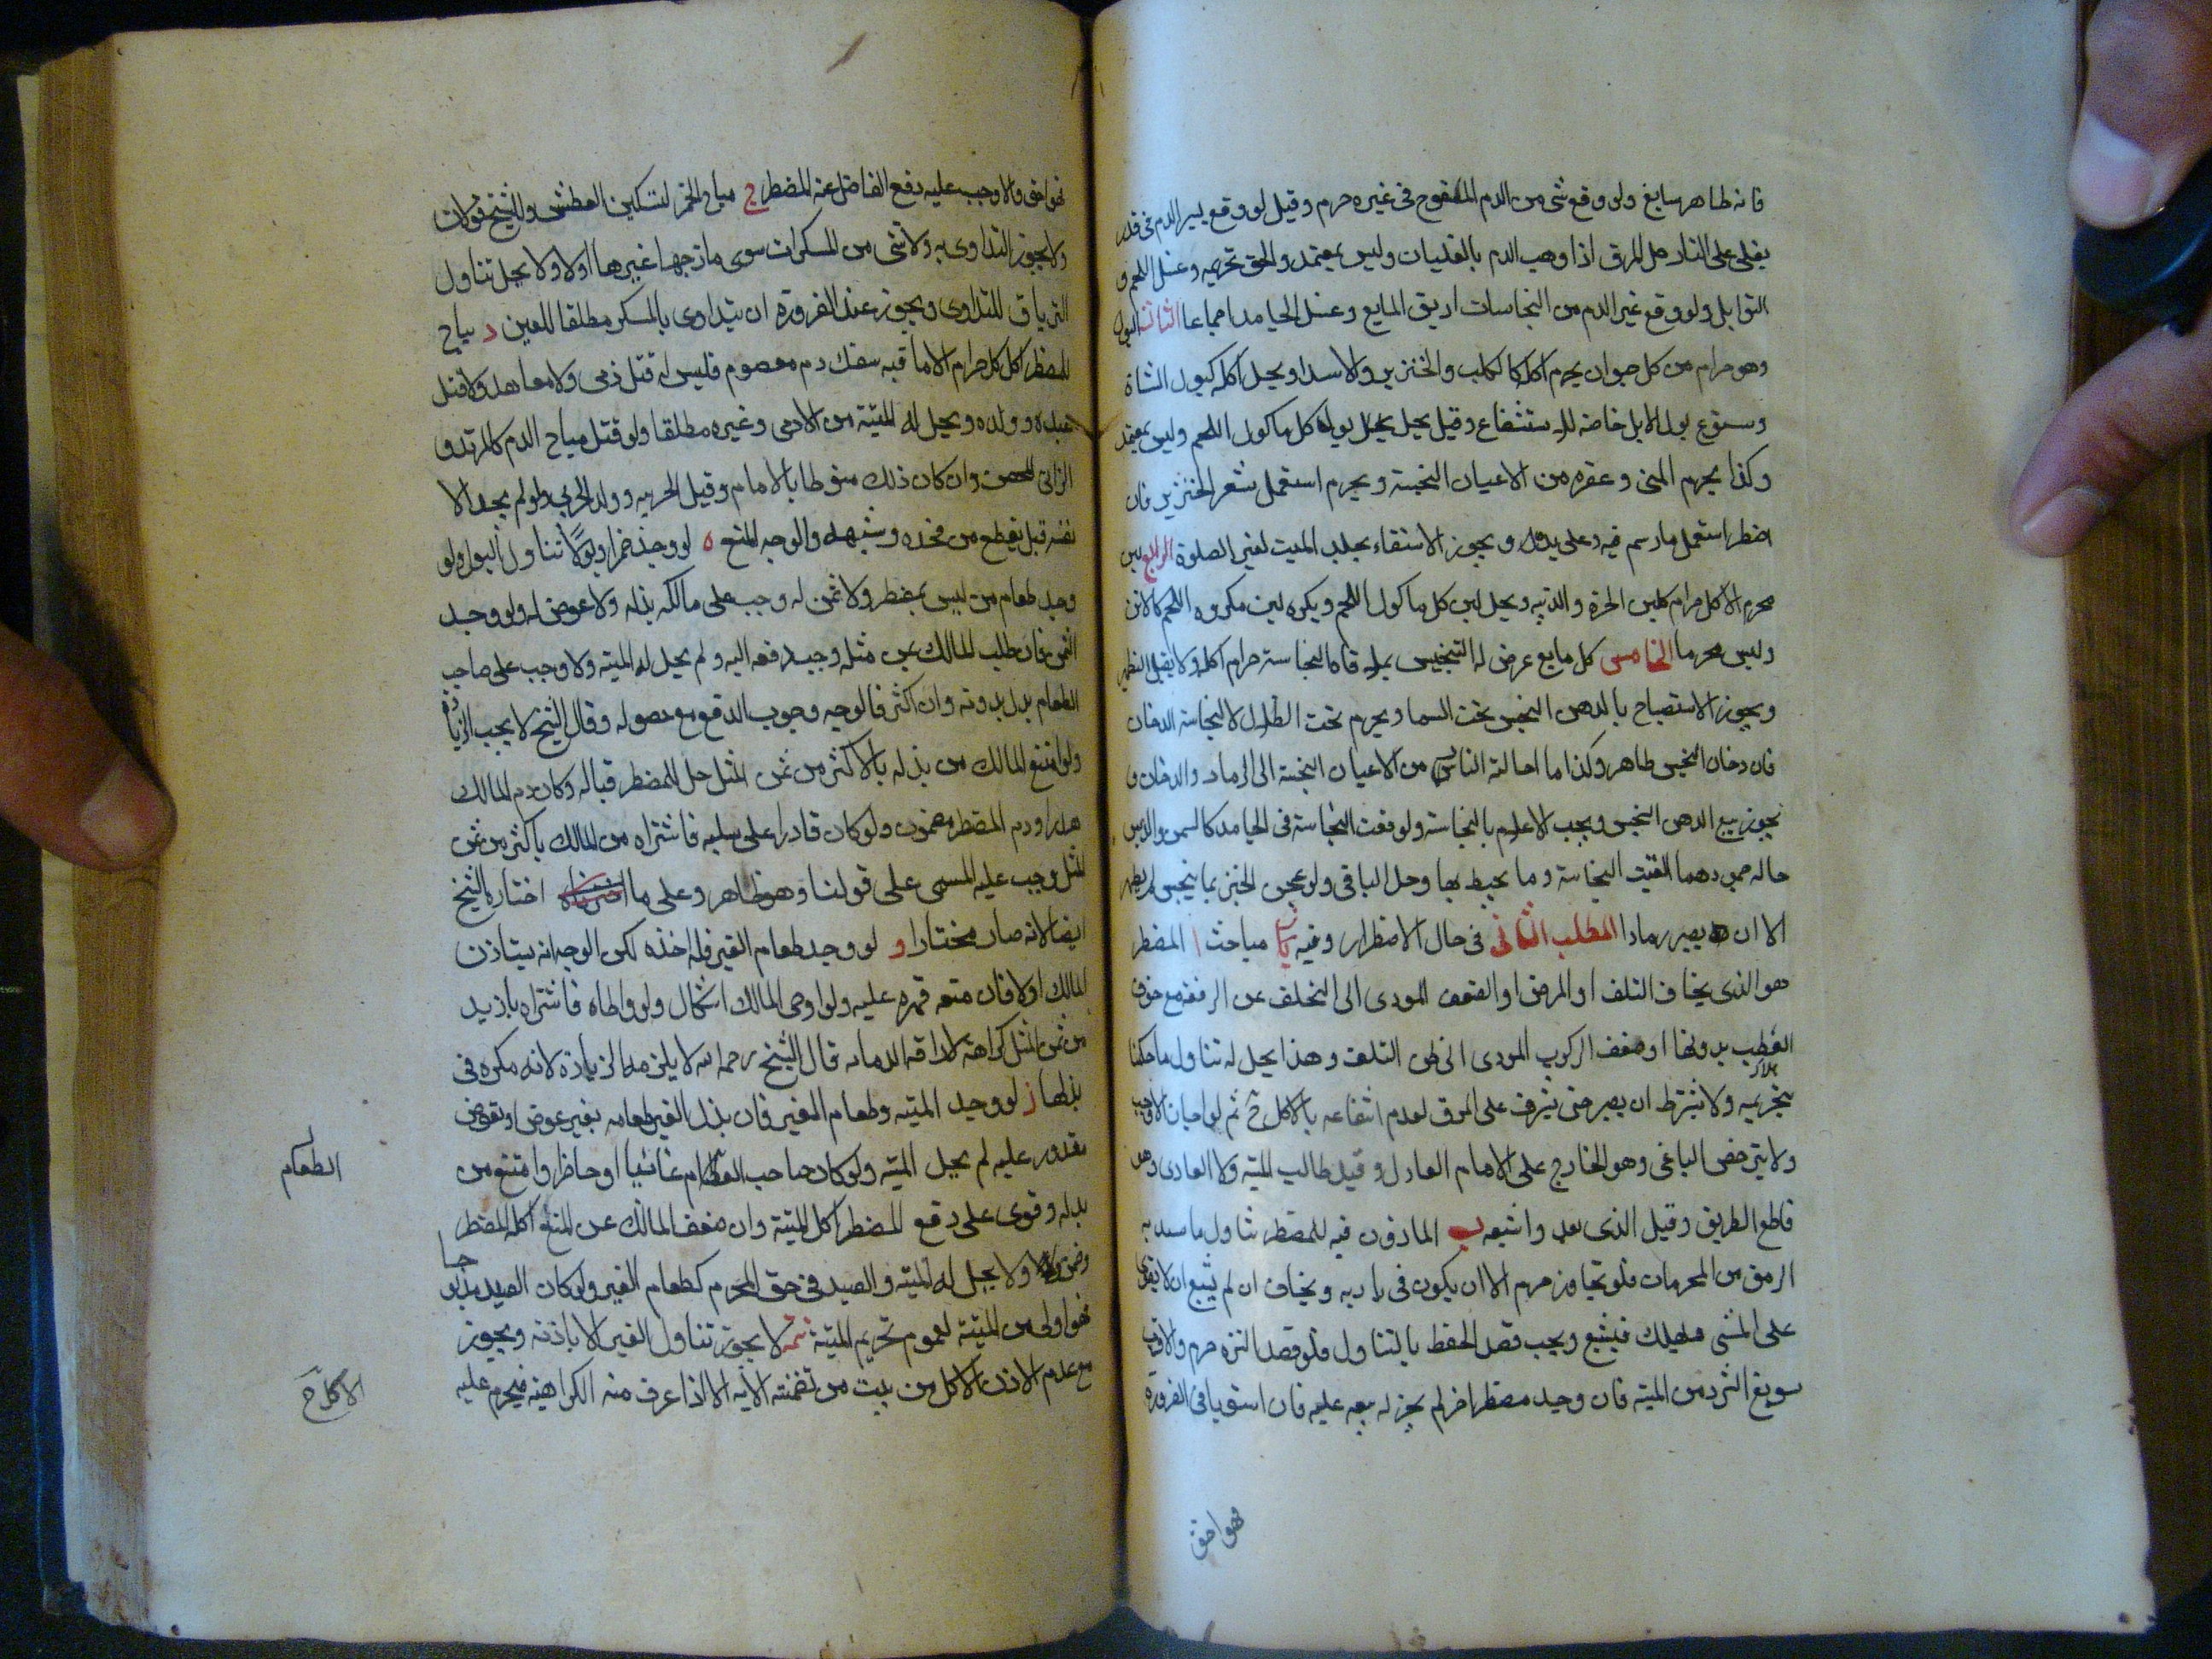 فانه طاهر سايغ ولو وقع شى من الدم المسفوح فى غيره حرم وقيل لو وقع يسير الدم فى قدر
يغلى على النار حل المرق اذا ذهب الدم بالغليان وليس بمعتمد والحق تحريمه وغسل اللحم و
التوابل ولو وقع غير الدم من النجاسات اريق المايع وغسل الجامد اجماعا الثالث البول
وهو حرام من كل حيوان يحرم اكله كالكلب والخنزير والاسد او يحل اكله كبول الشاة
وسوغ بول الابل خاصة للاستشفاء وقيل يحل بول كل ماكول اللحم وليس بمعتمد
وكذا يحرم المنى وغيره من الاعيان النجسة ويحرم استعمال شعر الخنزير فان
اضطر استعمل ما دسم فيه وغسل يده ويجوز الاستقاء بجلد الميت لغير الصلوة الرابع لبن
محرم الاكل حرام كلبن الهرة والذئبه ويحل لبن كل ماكول اللحم ويكره لبن مكروه اللحم كالاتن
وليس محرما الخامس كل مايع عرض له التنجيس بملاقاة النجاسة حرام اكله ولا يقبل التطهير
ويجوز الاستصباح بالدهن النجس تحت السما ويحرم تحت الظلال لا لنجاسة الدخان
فان دخان النجس طاهر وكذا ما احالته النار من الاعيان النجسة الى الرماد والدخان و
يجوز بيع الدهن النجس ويجب الاعلام بالنجاسة ولو وقعت النجاسة فى الجامد كالسمن والدبس
حالة جمودهما القيت النجاسة وما يحيط بها وحل الباقى ولو عجن الخبز بما نجس لم يطهر
الا ان يصير رمادا المطلب الثانى فى حال الاضطرار وفيه مباحث ا المضطر
هو الذى يخاف التلف او المرض او الضعف المودى الى التخلف عن الرفقه مع خوف
العطب بدونها او ضعف الركوب المودى الى ظن التلف وهذا يحل له تناول ما حكمنا
بتحريمه ولا يشترط ان يصير حتى يشرف على الموت لعدم انتفاعه بالاكل ح ثم لو
ولا يترخص الباغى وهو الخارج على الامام العادل وقيل طالب الميته ولا العادى وهو
قاطع الطريق وقيل الذى يعدو شبعه ب الماذون فيه للمضطر تناول ما سد به
الرمق من المحرمات فلو تجاوز حرم الا ان يكون فى باديه ويخاف ان لم يشبع ان لا يقوى
على المشى فيهلك فيشبع ويجب قصد الحفظ بالتناول فلو قصد التنزه حرم والاقرب
سويغ التزود من الميته فان وجد مضطرا اخر لم يجز له بيعه عليه فان استويا فى الضرورة
فهو احق
فهو احق والا وجب عليه دفع الفاضل عنه للمضطر ج يباح الخمر لتسكين العطش وللشيخ قولان
ولا يجوز التداوى به ولا بشى من المسكرات سوى مازجها غيرها اولا ولا يحل تناول
الترياق للتداوى ويجوز عند الضرورة ان يتداوى بالمسكر مطلقا للعين د يباح
للمضطر اكل كل حرام الا ما فيه سفك دم معصوم فليس له قتل ذمى ولا معاهد ولا قتل
عبده وولده ويحل له الميتة من الادمى وغيره مطلقا ولو قتل مباح الدم كالمرتد و
الزانى المحصن وان كان ذلك منوطا بالامام وقيل الحربيه وولد الحربى ولو لم يجد الا
نفسه قيل يقطع من فخذه وشبهه والوجه المنع ه لو وجد خمرا وبولا تناول البول ولو
وجد طعام من ليس بمضطر ولا ثمن له وجب على مالكه بذله ولا عوض له ولو وجد
الثمن فان طلب المالك ثمن مثله وجب دفعه اليه ولم يحل له الميته ولا وجب على صاحب
الطعام بذل بدونه وان اكثر فالوجه وجوب الدفع مع حصوله وقال الشيخ لا يجب الزيادة
ولو امتنع المالك من بذله بالاكثر من ثمن المثل حل للمضطر قتاله وكان دم المالك
هدرا ودم المضطر مضمون ولو كان قادرا على سلبه فاشتراه من المالك باكثر من ثمن
المثل وجب عليه المسمى على قولنا وهو ظاهر وعلى ما اختاره الشيخ
ايضا لانه صار مختارا و لو وجد طعام الغير فله اخذه لكن الوجه انه يستاذن
المالك اولا فان منعه قهره عليه ولو اوهى المالك اشكال ولو واطاه فاشتراه بازيد
من ثمن المثل كراهة لاراقه الدماء قال الشيخ رحمه الله لا يلزمه الزيادة لانه مكره فى
بذلها ز لو وجد الميته وطعام الغير فان بذل الغير طعامه بغير عوض او بعوض
يقدر عليه لم يحل الميته ولو كان صاحب الطعام غائبا او حاضرا وامتنع من
بذله وقوى على دفع المضطر اكل الميتة وان ضعف المالك عن المنع اكله المضطر
وضمن ولا يحل له الميته والصيد فى حق المحرم كطعام الغير ولو كان الصيد مذبوحا
فهو اولى من الميتة لعموم تحريم الميتة تتمة لا يجوز تناول الغير الا باذنه ويجوز
مع عدم الاذن الاكل من بيت من تضمنته الايه الا اذا عرف منه الكراهيه فيحرم عليه
الطعام
الاكل ح